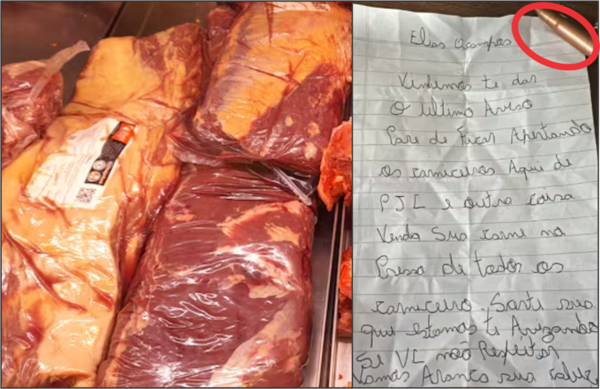 Elias Acampos
Venhemos te dar
O Ultimo Aviso
Pare de Ficar Apertando
os carniceros Aqui de
PJC e outra coisa
Venda Sua carne na
de todos os
carniceiro sua
que estamos te Avizando
Si VC não Respeitar
Vamos Aranca sua